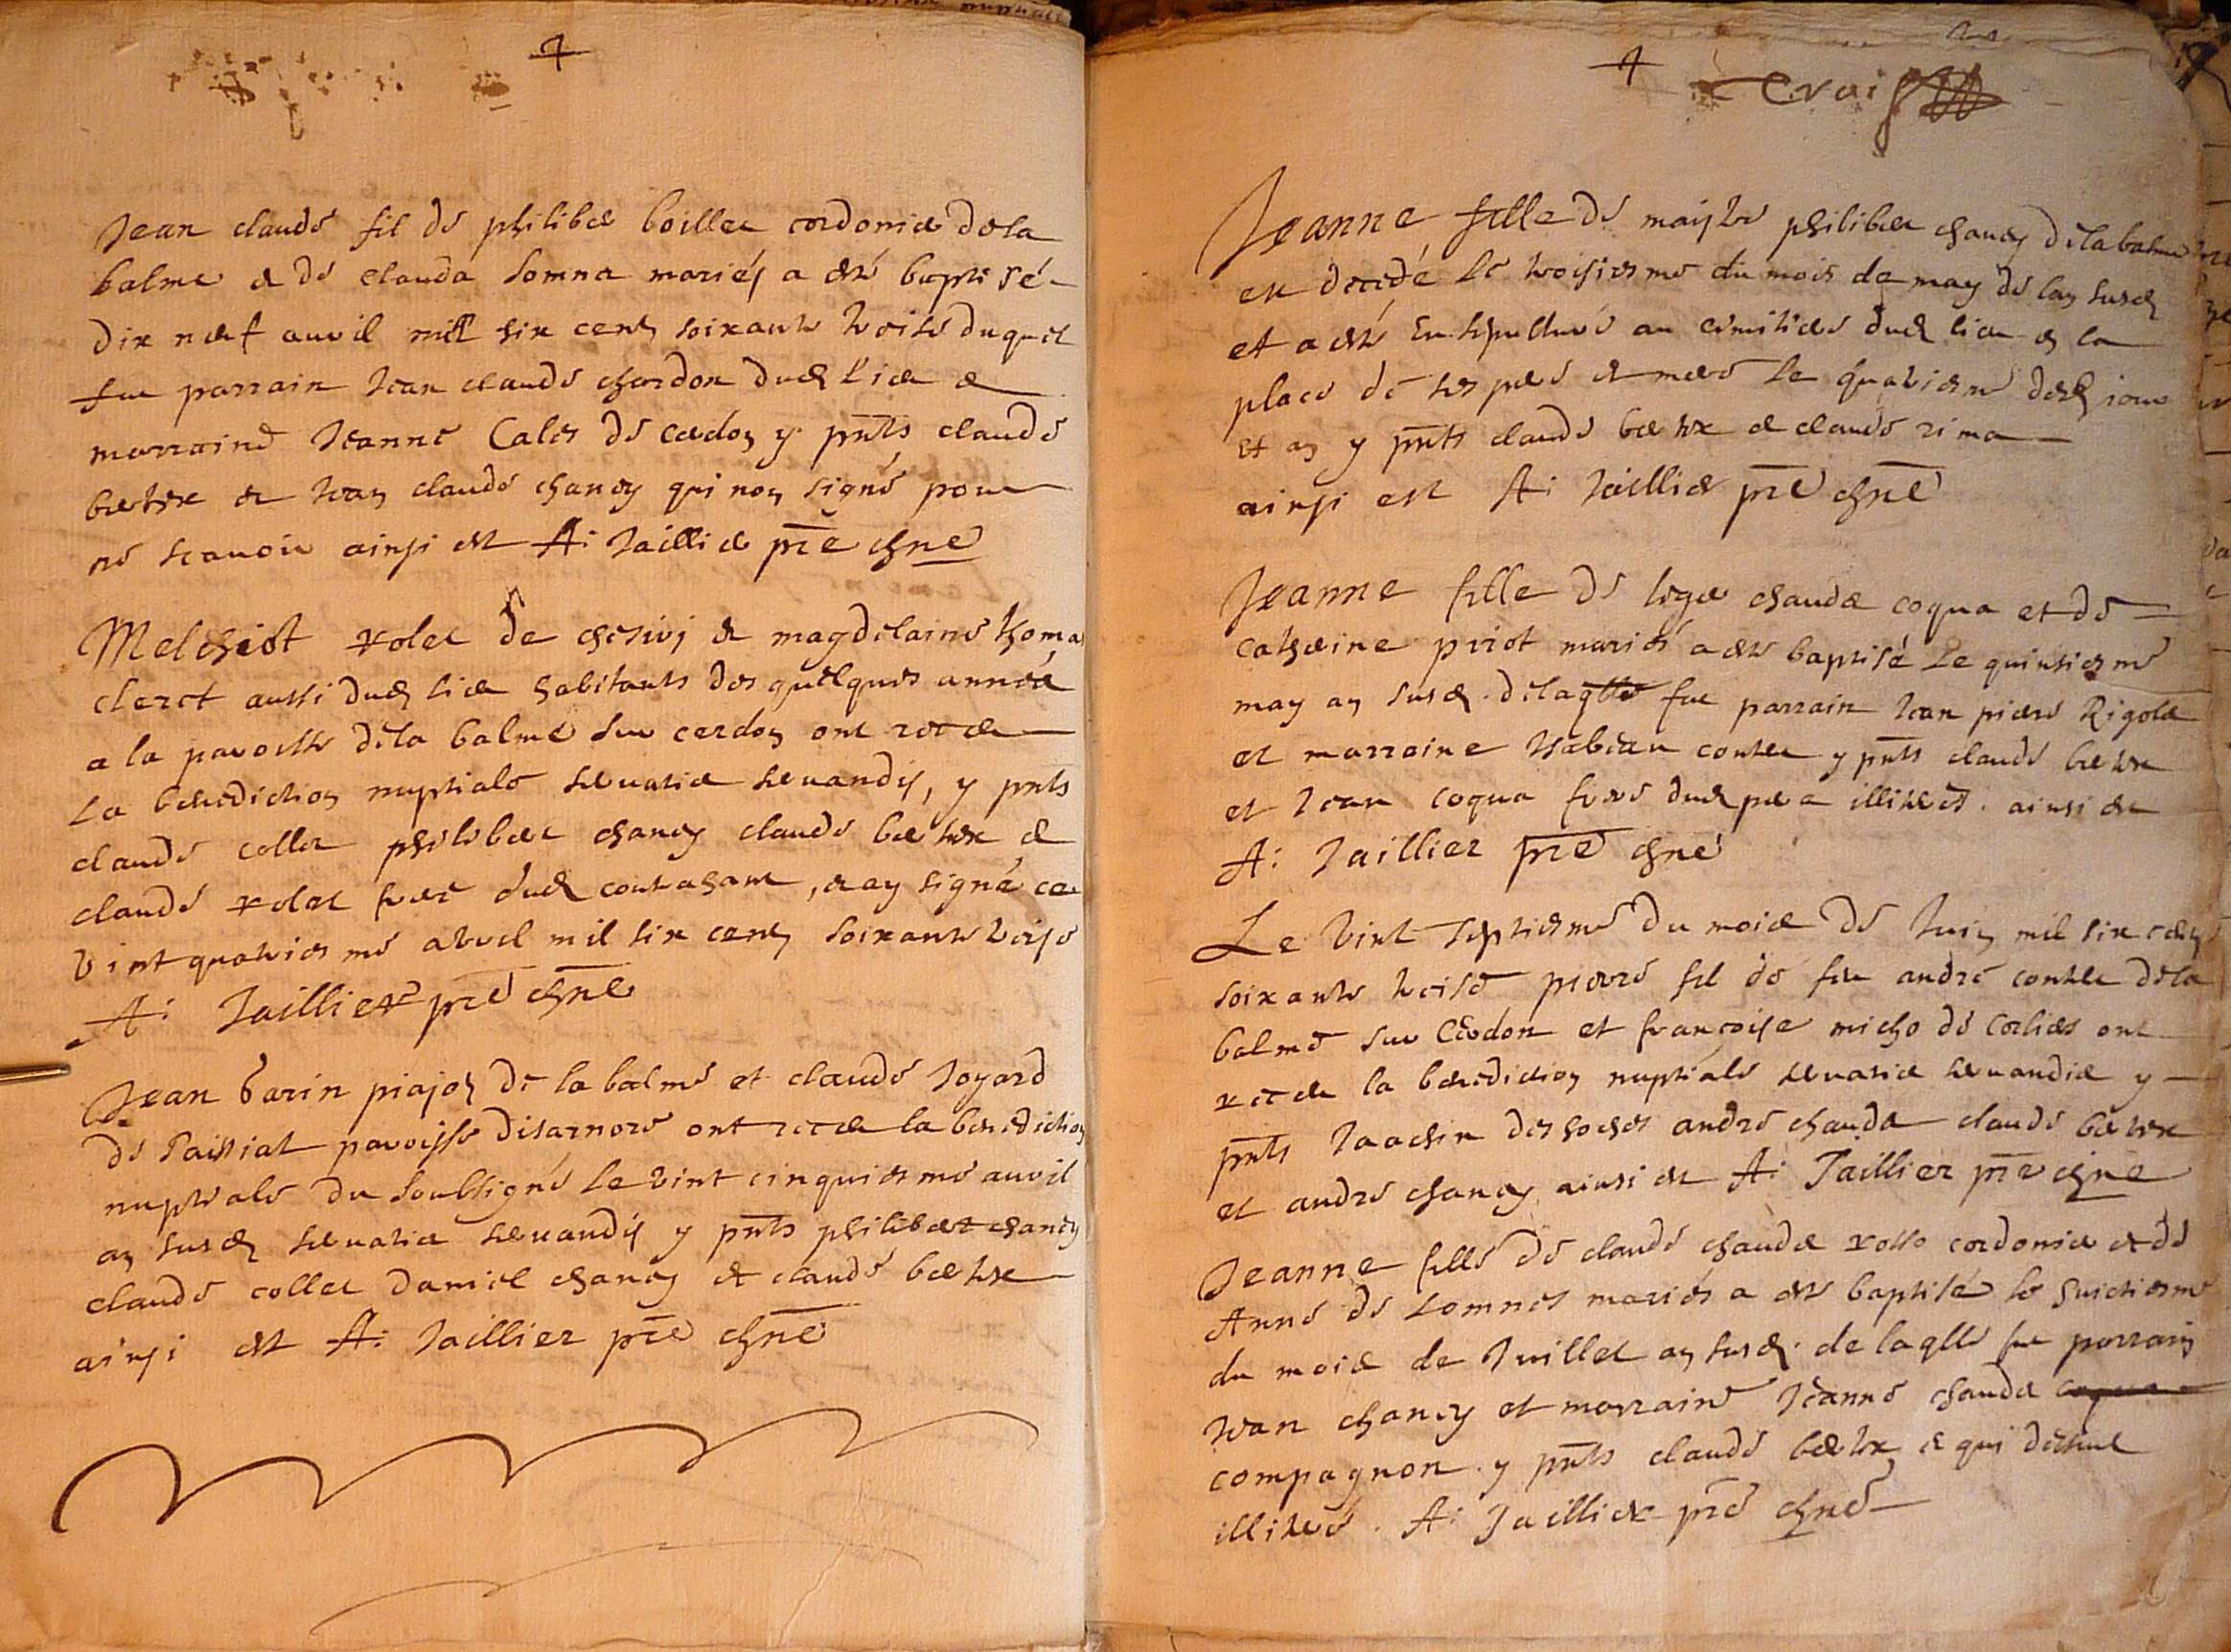 Jean claude fil de philiber boillet cordonier dela
balme et de clauda somna mariés a esté baptisé
dix neuf auril mil six cens soixante troise duquel
fut parrain Jean claude chardon dud lieu et
marraine Jeanne Cales de cerdon y pnts claude
et Jean claude chaney qui non signé pour
ne scauoir ainsi est A: Jaillier pre
Melchiot rolet de et magdelaine thoma
clerct aussi dud lieu habitants des quelques année
a la paroisse dela balme sur cerdon ont receu
La benediction nuptiale seruatis seruandis, y pnts
claude collet philiber chaney claude et
claude rolet frere dud contrahant, et ay signé ce
vint quatriesme auril mil six cens soixante troise
A: Jaillier pre
Jean barin piajon de la balme et claude Joyard
de paroisse disarnore ont receu la benediction
nuptiale du soubsigné Le vint cinquiesme auril
an susd seruatis seruandis y pnts philibert chaney
claude collet daniel chaney et claude
ainsi est A: Jaillier pre
Jeanne fille de maistre philiber chaney dela balme
est decedé Le troisiesme du mois de may de lan susd
et a esté Ensepulturé au cimitiere dud lieu en la
place de ses pere et mere Le quatriesme desd iour
et an y pnts claude et claude rima
ainsi est A: Jaillier pre
Jeanne fille de leger chauda coqua et de
catherine priot mariés a esté baptisé Le quinsiesme
may an susd. delaqlle fut parrain Jean piere Rigole
et marraine contet y pnts claude
et Jean coqua frere dud pere illiteres. ainsi est
A: Jaillier pre
Le vint septiesme du mois de Juin mil six cens
soixante troise pierre fil de feu andré contet dela
balme sur Cerdon et françoise micho de corlier ont
receu la benediction nuptiale seruatis seruandis y
pnts Joachin deshoches andré chauda claude
et andré chaney ainsi est A: Jaillier pre
Jeanne fille de claude chauda rosso cordonier et de
Anne de somnes mariés a esté baptisé le huictiesme
du mois de Juillet an susd. de laqlle fut parrain
Jean chaney et marraine Jeanne chauda
compagnon. y pnts claude
illiteré. A: Jaillier pre